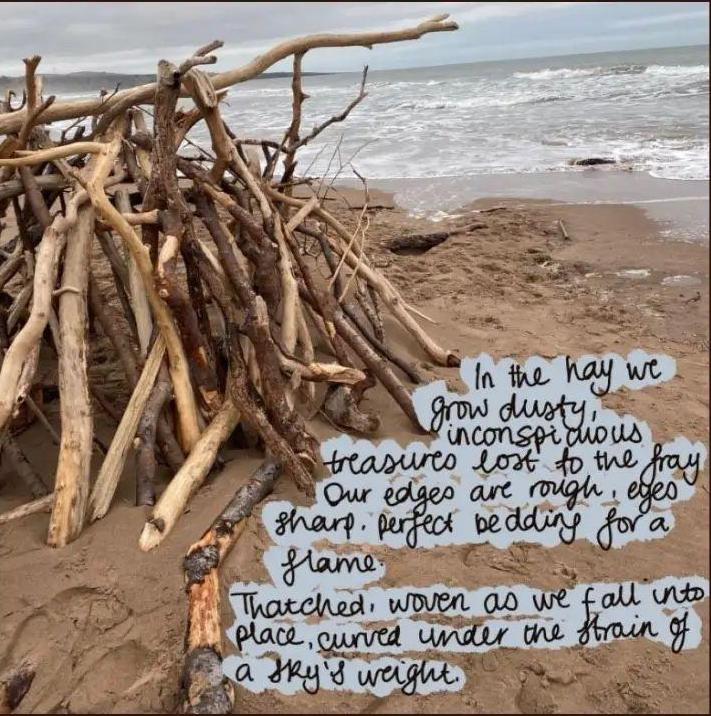 In the hay we
grow dusty,
inconspicuous
treasures lost to the fray
Our edges are rough, eyes
sharp. perfect bedding for a
flame.
Thatched, woven as we fall into
place, curved under the strain of
a sky's weight.